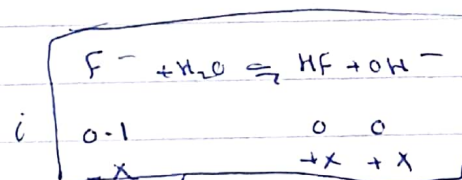 F⁻ + H₂O ⇋ HF + OH⁻
i 0.1 0 0
-x +x +x